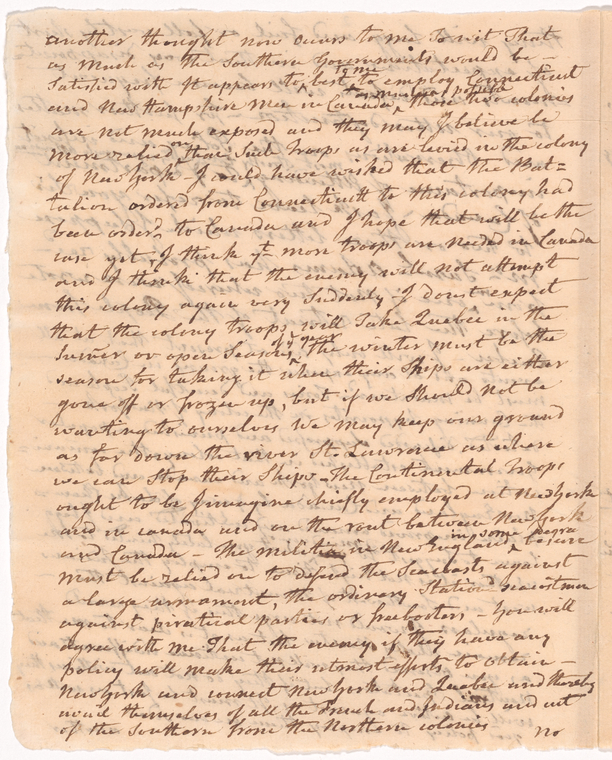 another thought now occurs to me To wit That
as much as the Southern Governments would be
Satisfied with It appears to me best to employ Connecticut
and New Hampshire men in Canada, those two colonies
are not much exposed and they may I believe be
more relied on than Such Troops as are levied in the colony
of New York - I could have wished that the Bat=
talion ordered from Connecticutt to this colony had
been orderd to Canada and I hope that will be the
case yet, I think yt more troops are needed in Canada
and I think that the enemy will not attempt
this colony again very Suddenly I dont expect
that the colony troops will Take Quebec in the
Summer or open Seasons of ye year, the winter must be the
season for taking it when their Ships are either
gone off or frozen up, but if we should not be
wanting to ourselves we may keep our ground
as far down the river St. Lawrance as where
we can Stop their Ships - The Continental Troops
ought to be I imagine chiefly employed at New York
and in canada and on the rout between New York
and Canada - The militia in New England in some degree
must be relied on to defend the Seacoasts against
a large armament, the ordinary Station seacoastmen
against piratical parties or freebooters - You will
agree with me That the enemy if they have any
policy will make their utmost efforts to obtain -
New York and connect New York and Quebec and thereby
avail themselves of all the French and Indians and cut
of the Southern from the Northern colonies
no